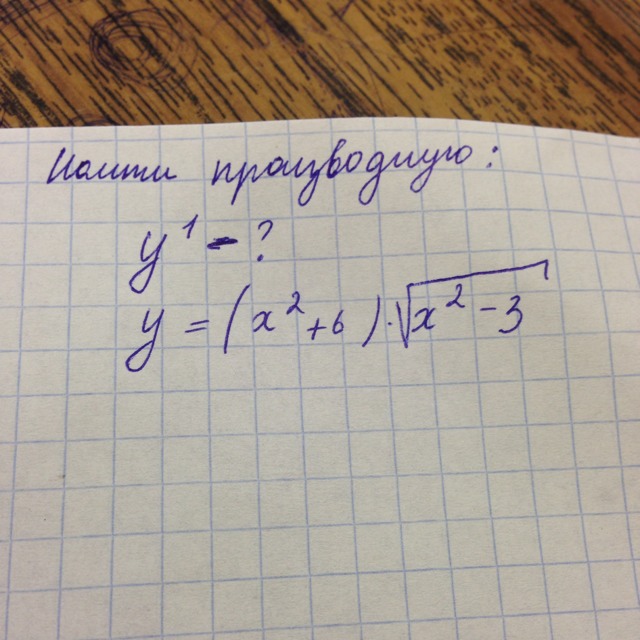 Найти производную:
y' - ?
y = (x² + 6) · √(x² - 3)